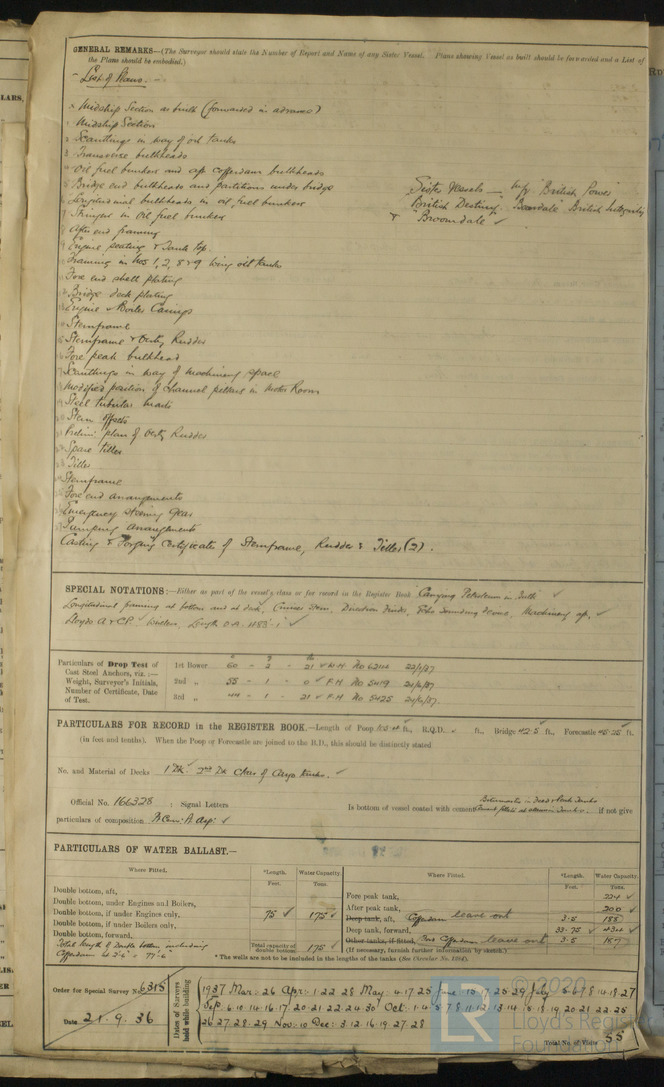 GENERAL REMARKS—(The Surveyor should state the Number of Report and Name of any Sister Vessel. Plans showing Vessel as built should be forwarded and a List of
the Plans should be embodied.)
List of Plans.
Midship Section as built (forwarded in advance)
Midship Section
Scantlings in way of oil tanks
Transverse bulkheads
Oil fuel bunker and aft Cofferdam bulkheads
Bridge end bulkheads and partitions under bridge
Longitudinal bulkheads in oil fuel bunkers
Stringer in Oil fuel bunker
After end framing
Engine seating & Tank top.
Framing in Nos 1, 2, 8 & 9 wing oil tanks
Fore end shell plating
Bridge deck plating
Engine & Boiler Casings
Sternframe
Sternframe & Oertz Rudder
Fore peak bulkhead
Scantlings in way of machinery space
Modified position of channel pillars in Motor Room
Steel tubular masts
Stem
plan of Oertz Rudder
Spare tiller
Tiller
Sternframe
Fore end arrangements
Emergency steering gear
Pumping arrangements
Casting & Forging Certificates of Sternframe, Rudder & Tiller (2).
Sister Vessels — m/v "British Power"
British Destiny British Integrity
& Broomdale
SPECIAL NOTATIONS:—Either as part of the vessel's class or for record in the Register Book Carrying Petroleum in Bulk
Longitudinal framing at bottom and at deck, Cruiser Stern, Direction finder, Echo Sounding device, Machinery aft,
Lloyds A & CP. Length O.A. 483'-1"
Particulars of Drop Test of
Cast Steel Anchors, viz.:—
Weight, Surveyor's Initials,
Number of Certificate, Date
of Test.
1st Bower 60 - 2 - 21
2nd „ 55 - 1 - 0 F.H No 5419
3rd „ 44 - 1 - 21 F.H No 5425
PARTICULARS FOR RECORD in the REGISTER BOOK.—Length of Poop ft., R.Q.D. ft., Bridge 42.5 ft., Forecastle ft.
(in feet and tenths). When the Poop or Forecastle are joined to the B.D., this should be distinctly stated
No. and Material of Decks 1 Dk. 2nd Dk Clear of Cargo tanks.
Official No. 166328 ; Signal Letters Is bottom of vessel coated with cement if not give
particulars of composition
PARTICULARS OF WATER BALLAST.—
Where Fitted. *Length. Water Capacity. Where Fitted. *Length. Water Capacity.
Feet. Tons. Feet. Tons.
Double bottom, aft,
Double bottom, under Engines and Boilers,
Double bottom, if under Engines only, 75 175
Double bottom, if under Boilers only,
Double bottom, forward,
Total length of double bottom including
Total capacity of double bottom 175
Fore peak tank, 224
After peak tank, 200
Deep tank, aft, Cofferdam leave out 3.5
Deep tank, forward, 33.75
Other tanks, if fitted, Cofferdam leave out 3.5
(If necessary, furnish further information by sketch.)
* The wells are not to be included in the lengths of the tanks (See Circular No. 1284).
Order for Special Survey No. 6315
Date 21.9.36
Dates of Surveys held while building
1937 Mar: 26 Apr: 1.22.28 May 4.17.25 June 15 25 29 July 5.6.7.8.14.18.27
Sep. 6.10.14.16.17.20.21.22.24.30 Oct: 1.4.5.7.8.11.12.13.14.15.18.19.20.21.22.25
26.27.28.29 Nov: 10 Dec: 3.12.16.19.27.28
Total No. of Visits 55
LR
© 2020
Lloyd's Register
Foundation